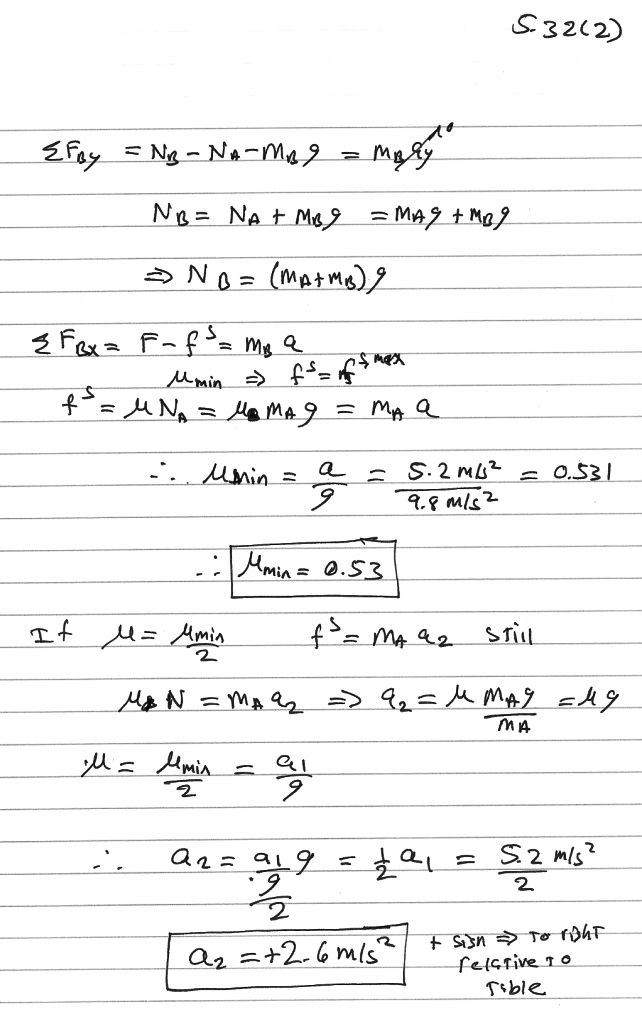 5.32(2)
ΣF_By = N_B - N_A - m_B g = m_B a_y → 0
N_B = N_A + m_B g = m_A g + m_B g
⇒ N_B = (m_A + m_B) g
ΣF_Bx = F - f^s = m_B a
μ_min ⇒ f^s = f^s,max
f^s = μ N_A = μ m_A g = m_A a
∴ μ_min = a/g = 5.2 m/s² / 9.8 m/s² = 0.531
∴ μ_min = 0.53
If μ = μ_min/2 f^s = m_A a_2 still
μ N = m_A a_2 ⇒ a_2 = μ m_A g / m_A = μ g
μ = μ_min/2 = a_1/g
∴ a_2 = (a_1/g)/2 g = 1/2 a_1 = 5.2 m/s² / 2
a_2 = +2.6 m/s² + sign ⇒ to right
relative to
table